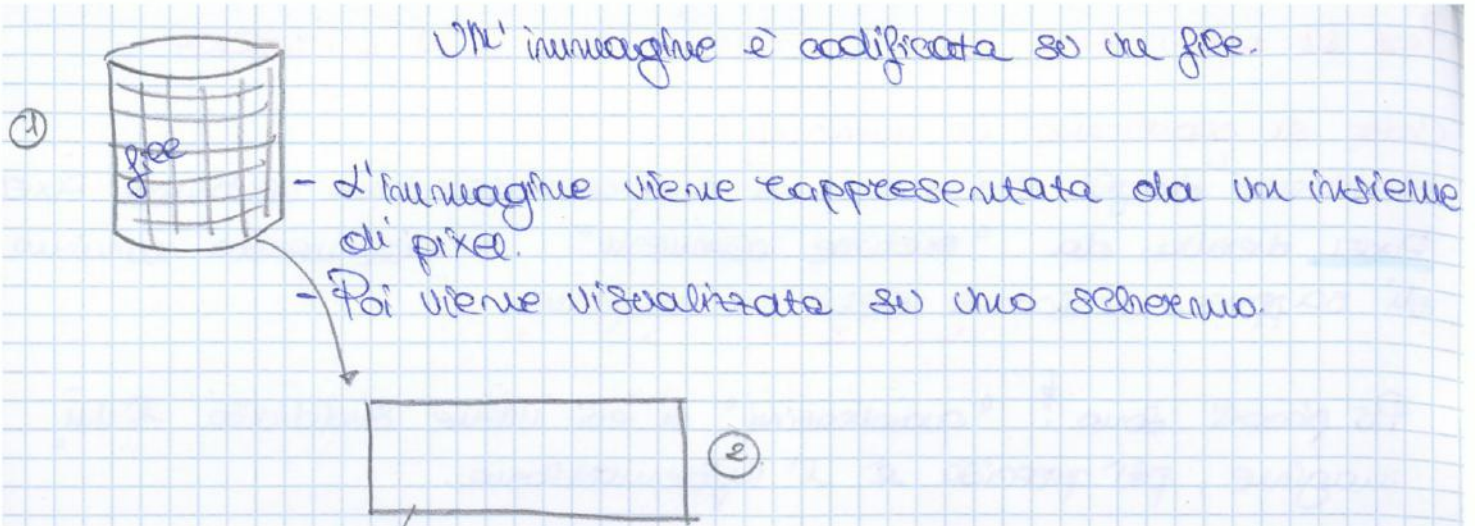 Un' immagine è codificata su un file.
1
file
- L'immagine viene rappresentata da un insieme
di pixel.
- Poi viene visualizzata su uno schermo.
2